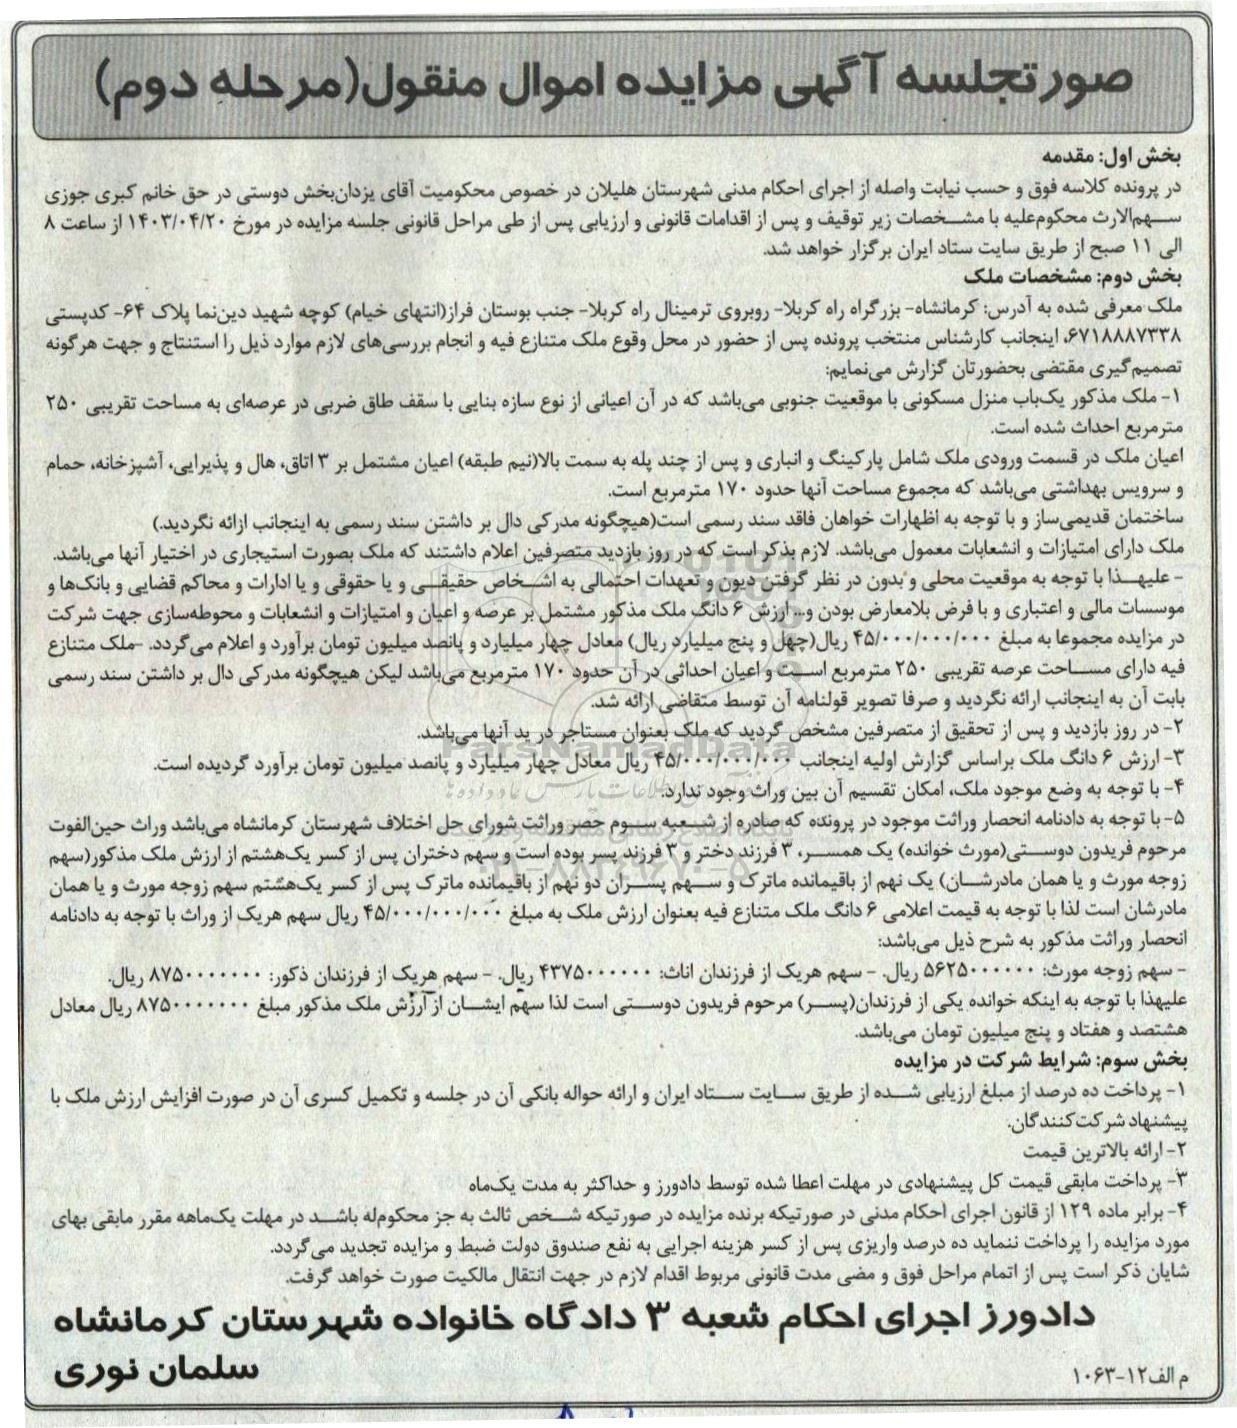 صورتجلسه آگهی مزایده اموال منقول(مرحله دوم)
بخش اول: مقدمه
در پرونده کلاسه فوق و حسب نیابت واصله از اجرای احکام مدنی شهرستان هلیلان در خصوص محکومیت آقای یزدان‌بخش دوستی در حق خانم کبری جوزی
سهم‌الارث محکوم‌علیه با مشخصات زیر توقیف و پس از اقدامات قانونی و ارزیابی پس از طی مراحل قانونی جلسه مزایده در مورخ ۱۴۰۳/۰۴/۲۰ از ساعت ۸
الی ۱۱ صبح از طریق سایت ستاد ایران برگزار خواهد شد.
بخش دوم: مشخصات ملک
ملک معرفی شده به آدرس: کرمانشاه- بزرگراه راه کربلا- روبروی ترمینال راه کربلا- جنب بوستان فراز(انتهای خیام) کوچه شهید دین‌نما پلاک ۶۴- کدپستی
۶۷۱۸۸۸۷۳۳۸، اینجانب کارشناس منتخب پرونده پس از حضور در محل وقوع ملک متنازع فیه و انجام بررسی‌های لازم موارد ذیل را استنتاج و جهت هرگونه
تصمیم‌گیری مقتضی بحضورتان گزارش می‌نمایم:
۱- ملک مذکور یک‌باب منزل مسکونی با موقعیت جنوبی می‌باشد که در آن اعیانی از نوع سازه بنایی با سقف طاق ضربی در عرصه‌ای به مساحت تقریبی ۲۵۰
مترمربع احداث شده است.
اعیان ملک در قسمت ورودی ملک شامل پارکینگ و انباری و پس از چند پله به سمت بالا(نیم طبقه) اعیان مشتمل بر ۳ اتاق، هال و پذیرایی، آشپزخانه، حمام
و سرویس بهداشتی می‌باشد که مجموع مساحت آنها حدود ۱۷۰ مترمربع است.
ساختمان قدیمی‌ساز و با توجه به اظهارات خواهان فاقد سند رسمی است(هیچگونه مدرکی دال بر داشتن سند رسمی به اینجانب ارائه نگردید.)
ملک دارای امتیازات و انشعابات معمول می‌باشد. لازم بذکر است که در روز بازدید متصرفین اعلام داشتند که ملک بصورت استیجاری در اختیار آنها می‌باشد.
- علیهذا با توجه به موقعیت محلی و بدون در نظر گرفتن دیون و تعهدات احتمالی به اشخاص حقیقی و یا حقوقی و یا ادارات و محاکم قضایی و بانک‌ها و
موسسات مالی و اعتباری و با فرض بلامعارض بودن و... ارزش ۶ دانگ ملک مذکور مشتمل بر عرصه و اعیان و امتیازات و انشعابات و محوطه‌سازی جهت شرکت
در مزایده مجموعا به مبلغ ۴۵/۰۰۰/۰۰۰/۰۰۰ ریال(چهل و پنج میلیارد ریال) معادل چهار میلیارد و پانصد میلیون تومان برآورد و اعلام می‌گردد. -ملک متنازع
فیه دارای مساحت عرصه تقریبی ۲۵۰ مترمربع است و اعیان احداثی در آن حدود ۱۷۰ مترمربع می‌باشد لیکن هیچگونه مدرکی دال بر داشتن سند رسمی
بابت آن به اینجانب ارائه نگردید و صرفا تصویر قولنامه آن توسط متقاضی ارائه شد.
۲- در روز بازدید و پس از تحقیق از متصرفین مشخص گردید که ملک بعنوان مستاجر در ید آنها می‌باشد.
ParsNamadData
۳- ارزش ۶ دانگ ملک براساس گزارش اولیه اینجانب ۴۵/۰۰۰/۰۰۰/۰۰۰ ریال معادل چهار میلیارد و پانصد میلیون تومان برآورد گردیده است.
۴- با توجه به وضع موجود ملک، امکان تقسیم آن بین وراث وجود ندارد.
۵- با توجه به دادنامه انحصار وراثت موجود در پرونده که صادره از شعبه سوم حصر وراثت شورای حل اختلاف شهرستان کرمانشاه می‌باشد وراث حین‌الفوت
مرحوم فریدون دوستی(مورث خوانده) یک همسر، ۳ فرزند دختر و ۳ فرزند پسر بوده است و سهم دختران پس از کسر یک‌هشتم از ارزش ملک مذکور(سهم
زوجه مورث و یا همان مادرشان) یک نهم از باقیمانده ماترک و سهم پسران دو نهم از باقیمانده ماترک پس از کسر یک‌هشتم سهم زوجه مورث و یا همان
مادرشان است لذا با توجه به قیمت اعلامی ۶ دانگ ملک متنازع فیه بعنوان ارزش ملک به مبلغ ۴۵/۰۰۰/۰۰۰/۰۰۰ ریال سهم هریک از وراث با توجه به دادنامه
انحصار وراثت مذکور به شرح ذیل می‌باشد:
- سهم زوجه مورث: ۵۶۲۵۰۰۰۰۰۰ ریال. - سهم هریک از فرزندان اناث: ۴۳۷۵۰۰۰۰۰۰ ریال. - سهم هریک از فرزندان ذکور: ۸۷۵۰۰۰۰۰۰۰ ریال.
علیهذا با توجه به اینکه خوانده یکی از فرزندان(پسر) مرحوم فریدون دوستی است لذا سهم ایشان از ارزش ملک مذکور مبلغ ۸۷۵۰۰۰۰۰۰۰ ریال معادل
هشتصد و هفتاد و پنج میلیون تومان می‌باشد.
بخش سوم: شرایط شرکت در مزایده
۱- پرداخت ده درصد از مبلغ ارزیابی شده از طریق سایت ستاد ایران و ارائه حواله بانکی آن در جلسه و تکمیل کسری آن در صورت افزایش ارزش ملک با
پیشنهاد شرکت‌کنندگان.
۲- ارائه بالاترین قیمت
۳- پرداخت مابقی قیمت کل پیشنهادی در مهلت اعطا شده توسط دادورز و حداکثر به مدت یک‌ماه
۴- برابر ماده ۱۲۹ از قانون اجرای احکام مدنی در صورتیکه برنده مزایده در صورتیکه شخص ثالث به جز محکوم‌له باشد در مهلت یک‌ماهه مقرر مابقی بهای
مورد مزایده را پرداخت ننماید ده درصد واریزی پس از کسر هزینه اجرایی به نفع صندوق دولت ضبط و مزایده تجدید می‌گردد.
شایان ذکر است پس از اتمام مراحل فوق و مضی مدت قانونی مربوط اقدام لازم در جهت انتقال مالکیت صورت خواهد گرفت.
دادورز اجرای احکام شعبه ۳ دادگاه خانواده شهرستان کرمانشاه
سلمان نوری
م الف۱۲-۱۰۶۳